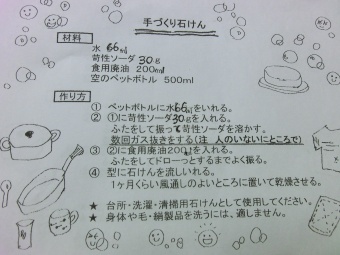 手づくり石けん
材料
水 66ml
苛性ソーダ 30g
食用廃油 200ml
空のペットボトル 500ml
作り方
① ペットボトルに水66mlを入れる。
② ①に苛性ソーダ30gを入れる。
ふたをして振って苛性ソーダを溶かす。
数回ガス抜きをする(注 人のいないところで)
③ ②に食用廃油200mlを入れる。
ふたをしてドローっとするまでよく振る。
④ 型に石けんを流しいれる。
1ヶ月くらい風通しのよいところに置いて乾燥させる。
★ 台所・洗濯・清掃用石けんとして使用してください。
★ 身体や毛・絹製品を洗うには、適しません。